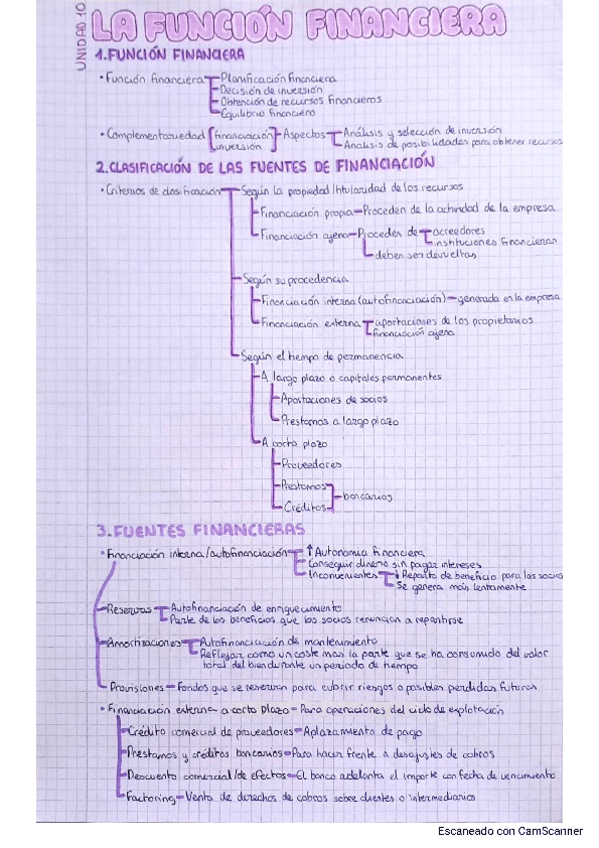 UNIDAD 10
LA FUNCIÓN FINANCIERA
1.FUNCIÓN FINANCIERA
• Función financiera Planificación financiera
Decisión de inversión
Obtención de recursos financieros
Equilibrio financiero
• Complementariedad financiación Aspectos Análisis y selección de inversión
inversión Analisis de posibilidades para obtener recursos
2.CLASIFICACIÓN DE LAS FUENTES DE FINANCIACIÓN
• Criterios de clasificación Según la propiedad/titularidad de los recursos
Financiación propia Proceden de la actividad de la empresa
Financiación ajena Proceden de acreedores
instituciones financieras
deben ser devueltas
Según su procedencia
Financiación interna (autofinanciación) generada en la empresa
Financiación externa aportaciones de los propietarios
financiación ajena
Según el tiempo de permanencia
A largo plazo o capitales permanentes
Aportaciones de socios
Prestamos a largo plazo
A corto plazo
Proveedores
Prestamos
Créditos bancarios
3.FUENTES FINANCIERAS
• Financiación interna/autofinanciación ↑ Autonomia financiera
Conseguir dinero sin pagar intereses
Inconvenientes ↓ Reparto de beneficio para los socios
Se genera más lentamente
Reservas Autofinanciación de enriquecimiento
Parte de los beneficios que los socios renuncian a repartirse
Amortizaciones Autofinanciación de mantenimiento
Reflejar como un coste mas la parte que se ha consumido del valor
total del bien durante un periodo de tiempo
Provisiones Fondos que se reservan para cubrir riesgos o posibles perdidas futuras
• Financiación externa a corto plazo Para operaciones del ciclo de explotación
Crédito comercial de proveedores Aplazamiento de pago
Prestamos y créditos bancarios Para hacer frente a desajustes de cobros
Descuento comercial/de efectos El banco adelanta el importe con fecha de vencimiento
Factoring Venta de derechos de cobros sobre clientes o intermediarios
Escaneado con CamScanner